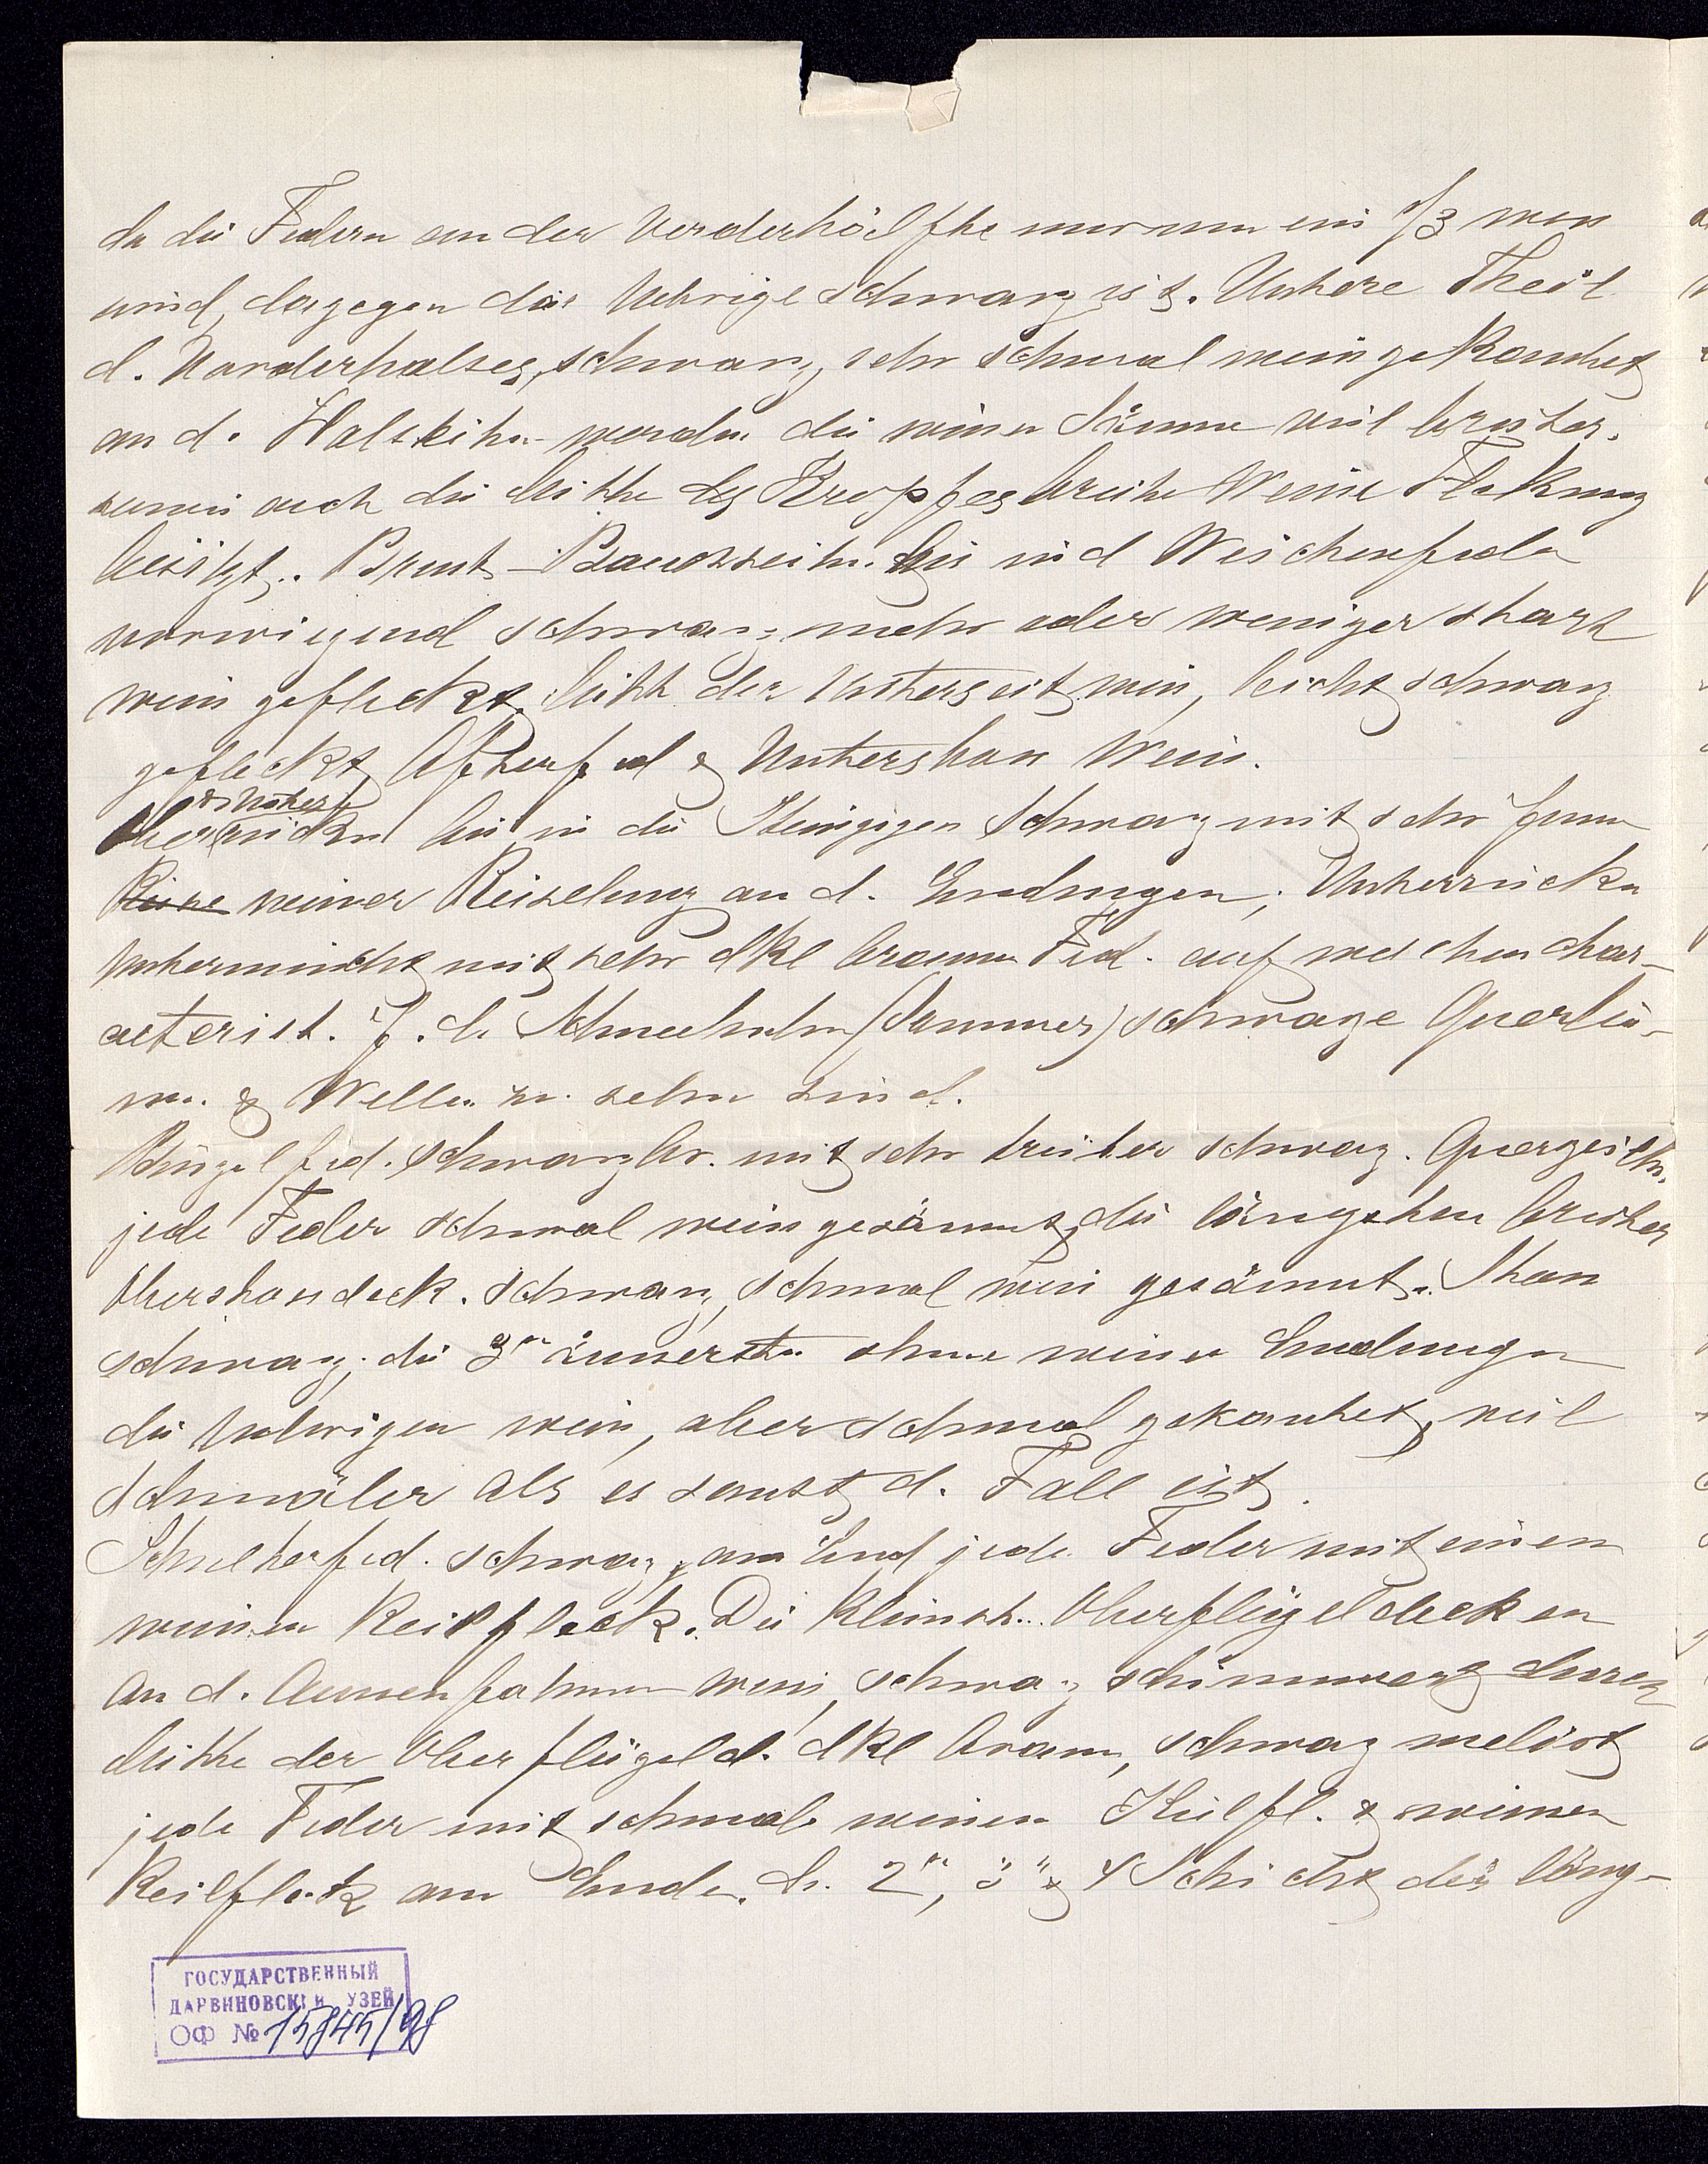 da die Federn an der Vorderhälfte nur um ein 1/3 weis
sind, dagegen das Uebrige schwarz ist. Untere Theil
d. Vorderhalses, schwarz, sehr schmal weis gekantet
an d. Halsseiten werden die weisen Säume viel breiter.
sowie auch die Mitte des Kropfes breite Weise Flekung
besitzt. Brust - Bauchseiten bis incl Weichenfeder
vorwiegend schwarz, mehr oder weniger stark
weis gefleckt, Mitte der Unterseite weis, leicht schwarz
gefleckt, Afterfed & Unterstoss Weis.
& Unter
Oberrücken bis in die Steingegen Schwarz mit sehr feiner
weiser Rieselung an d. Endungen; Unterrücken
untermischt mit sehr dkl braunen Fed. auf welchen char-
acterist. f. d. Schneehuhn (Sommer) schwarze Querlini-
en. & Wellen zu sehen sind.
Bürzelfed. schwarzbr. mit sehr breiter schwarz. Querzeichn.
jede Feder schmal weis gesäumt, die längsten breiter
Oberstossdeck. schwarz, schmal weis gesäumt. Stoss
schwarz, die 3ⁿ äusersten ohne weise Endungen
die Uebrigen weis, aber schmal gekantet, viel
schmäler als es sonst d. Fall ist.
Schulterfed. schwarz, am End jede Feder mit einem
weisen Keilfleck. Die kleinst. Oberflügeldecken
an d. Aussenfahnen weis, schwarz
Mitte der Oberflügeld. dkl braun, schwarz melirt
jede Feder mit schmale weisen Kielfl. & weisen
Keilfleck am Ende. D. 2ⁿ, 3ⁿ & 4 Schicht der läng-
ГОСУДАРСТВЕННЫЙ
ДАРВИНОВСКИЙ УЗЕЙ
ОФ № 15845/98